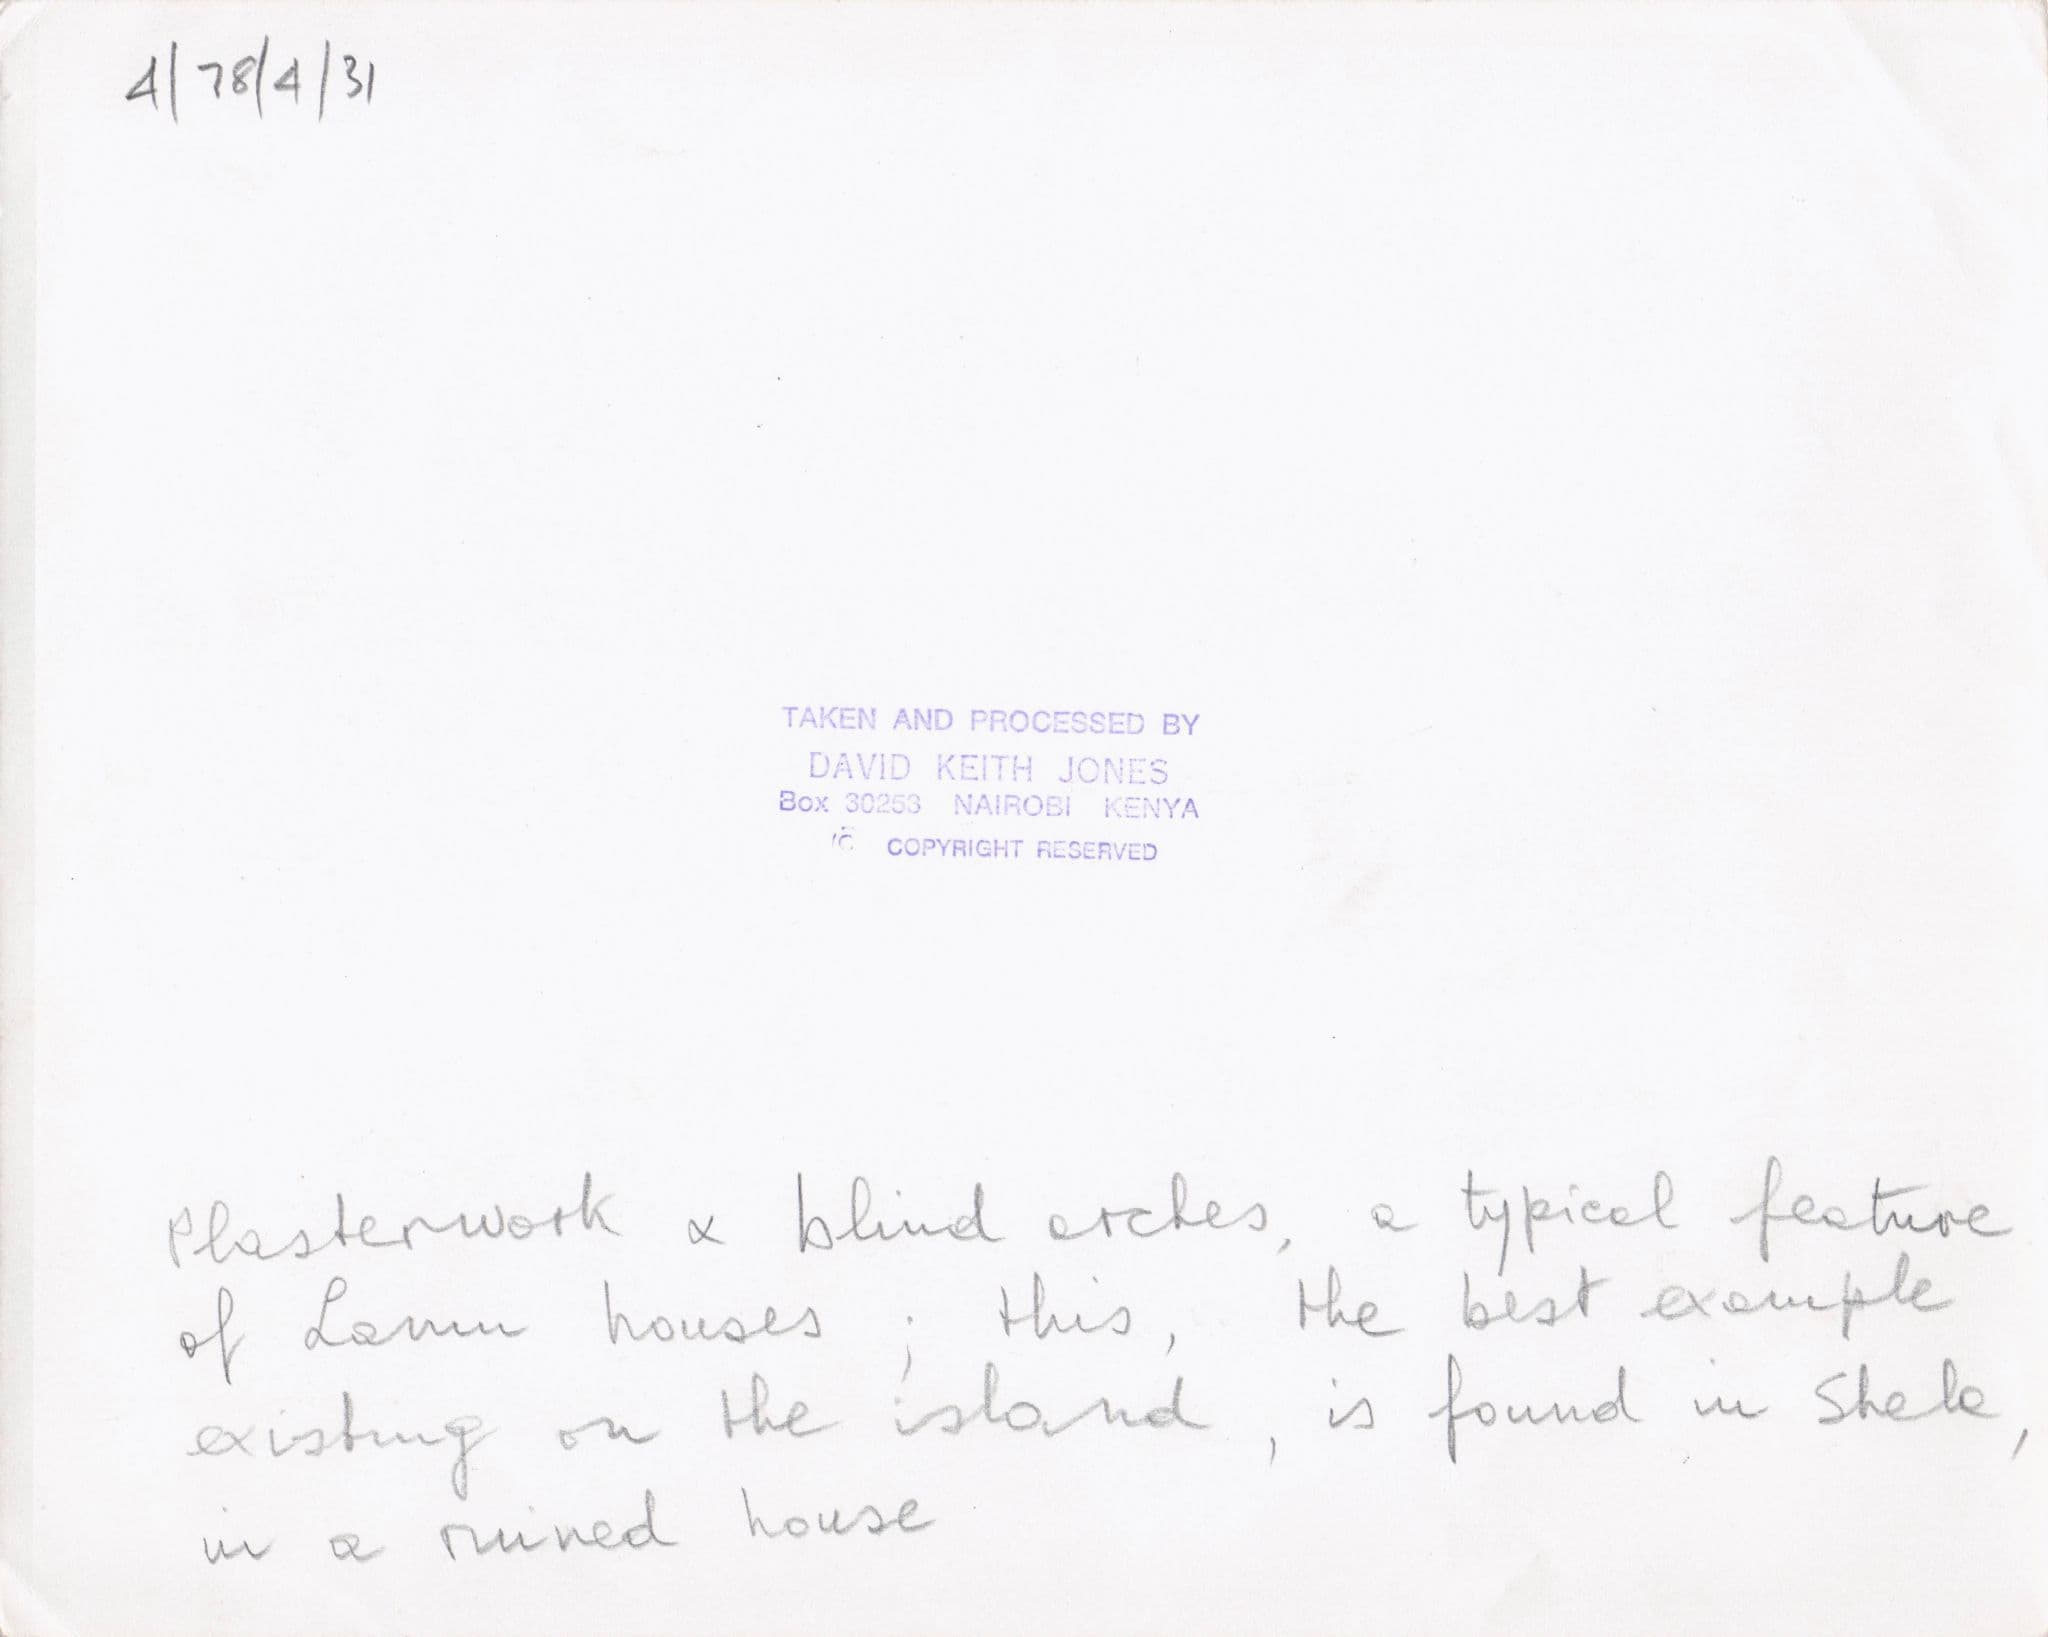 4/78/4/31
TAKEN AND PROCESSED BY
DAVID KEITH JONES
Box 30253 NAIROBI KENYA
© COPYRIGHT RESERVED
Plasterwork & blind arches, a typical feature
of Lamu houses; this, the best example
existing on the island, is found in Shela,
in a ruined house